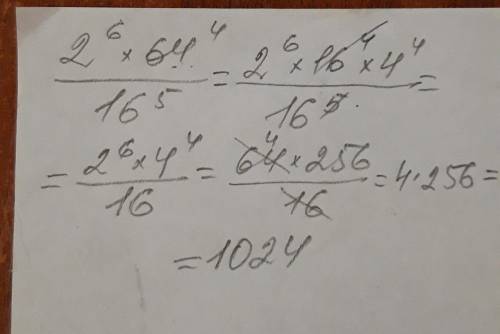 2⁶ × 64⁴ / 16⁵ = 2⁶ × 16⁴ × 4⁴ / 16⁵ =
= 2⁶ × 4⁴ / 16 = 64 × 256 / 16 = 4 · 256 =
= 1024